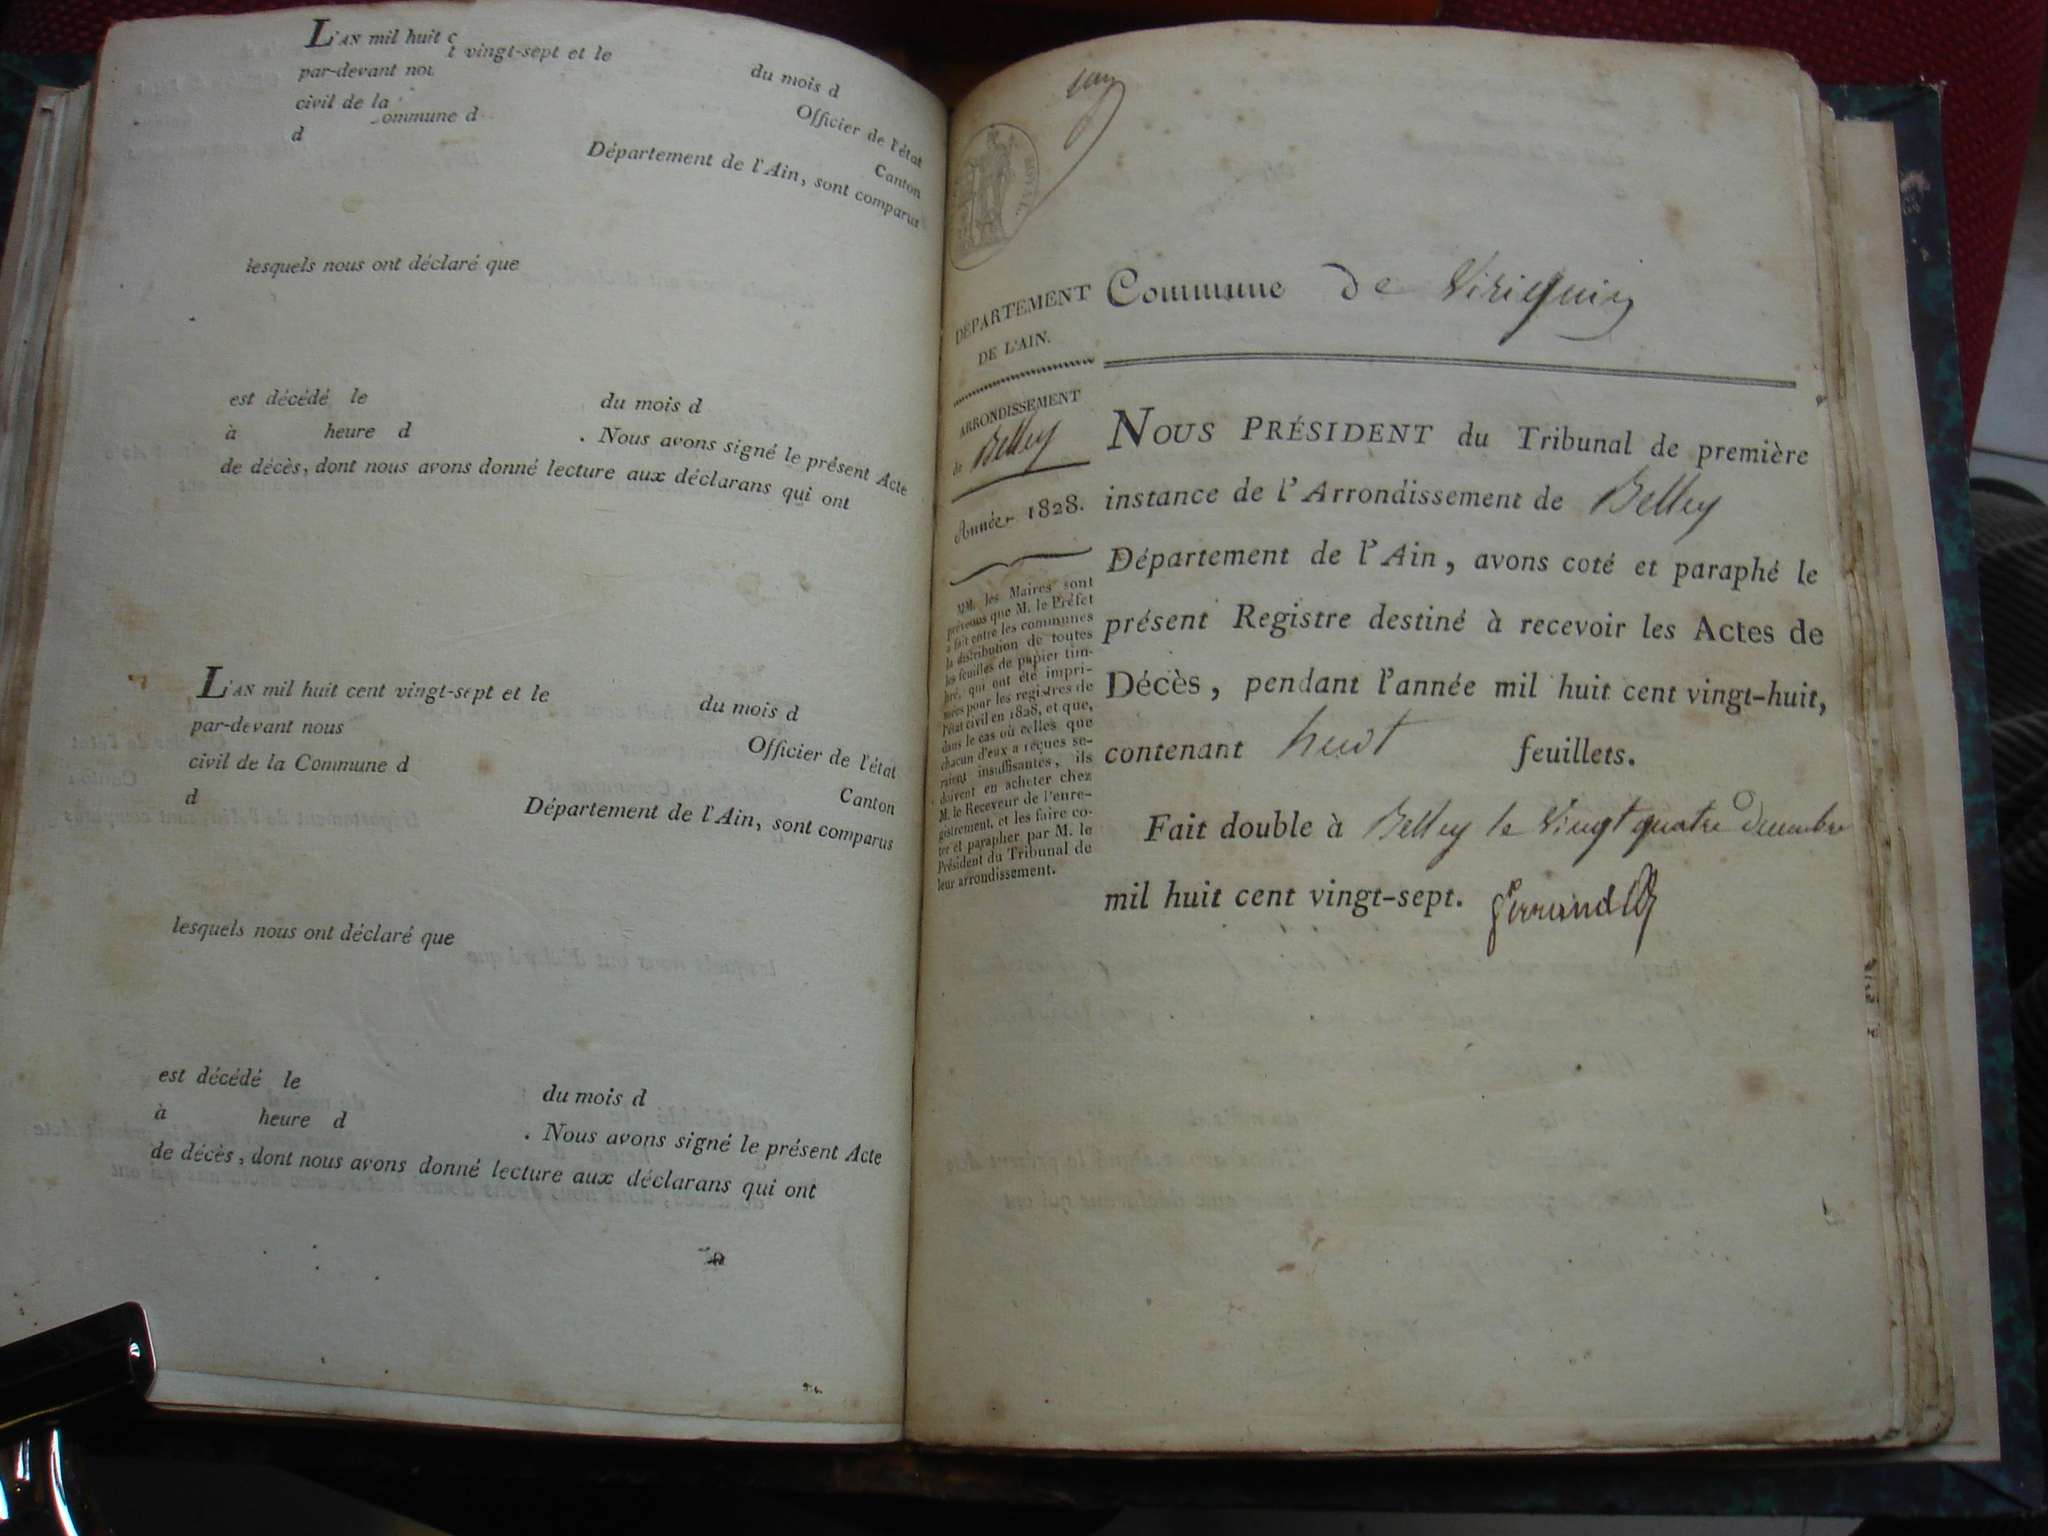 L'AN mil huit c
t vingt-sept et le
du mois d
par-devant nou
Officier de l'état
civil de la
ommune d
Canton
d
Département de l'Ain, sont comparus
lesquels nous ont déclaré que
est décédé le
du mois d
à heure d
. Nous avons signé le présent Acte
de décès, dont nous avons donné lecture aux déclarans qui ont
L'AN mil huit cent vingt-sept et le
du mois d
par-devant nous
Officier de l'état
civil de la Commune d
Canton
d
Département de l'Ain, sont comparus
lesquels nous ont déclaré que
est décédé le
du mois d
à heure d
. Nous avons signé le présent Acte
de décès, dont nous avons donné lecture aux déclarans qui ont
ROYAL
DÉPARTEMENT
DE L'AIN.
ARRONDISSEMENT
de Belley
Année 1828.
MM. les Maires sont
prévenus que M. le Préfet
a fait entre les communes
la distribution de toutes
les feuilles de papier tim-
bré, qui ont été impri-
mées pour les registres de
l'état civil en 1828, et que,
dans le cas où celles que
chacun d'eux a reçues se-
raient insuffisantes, ils
doivent en acheter chez
M. le Receveur de l'enre-
gistrement, et les faire co-
ter et parapher par M. le
Président du Tribunal de
leur arrondissement.
Commune de Virignin
NOUS PRÉSIDENT du Tribunal de première
instance de l'Arrondissement de Belley
Département de l'Ain, avons coté et paraphé le
présent Registre destiné à recevoir les Actes de
Décès, pendant l'année mil huit cent vingt-huit,
contenant huit feuillets.
Fait double à Belley le Vingt quatre Decembre
mil huit cent vingt-sept.